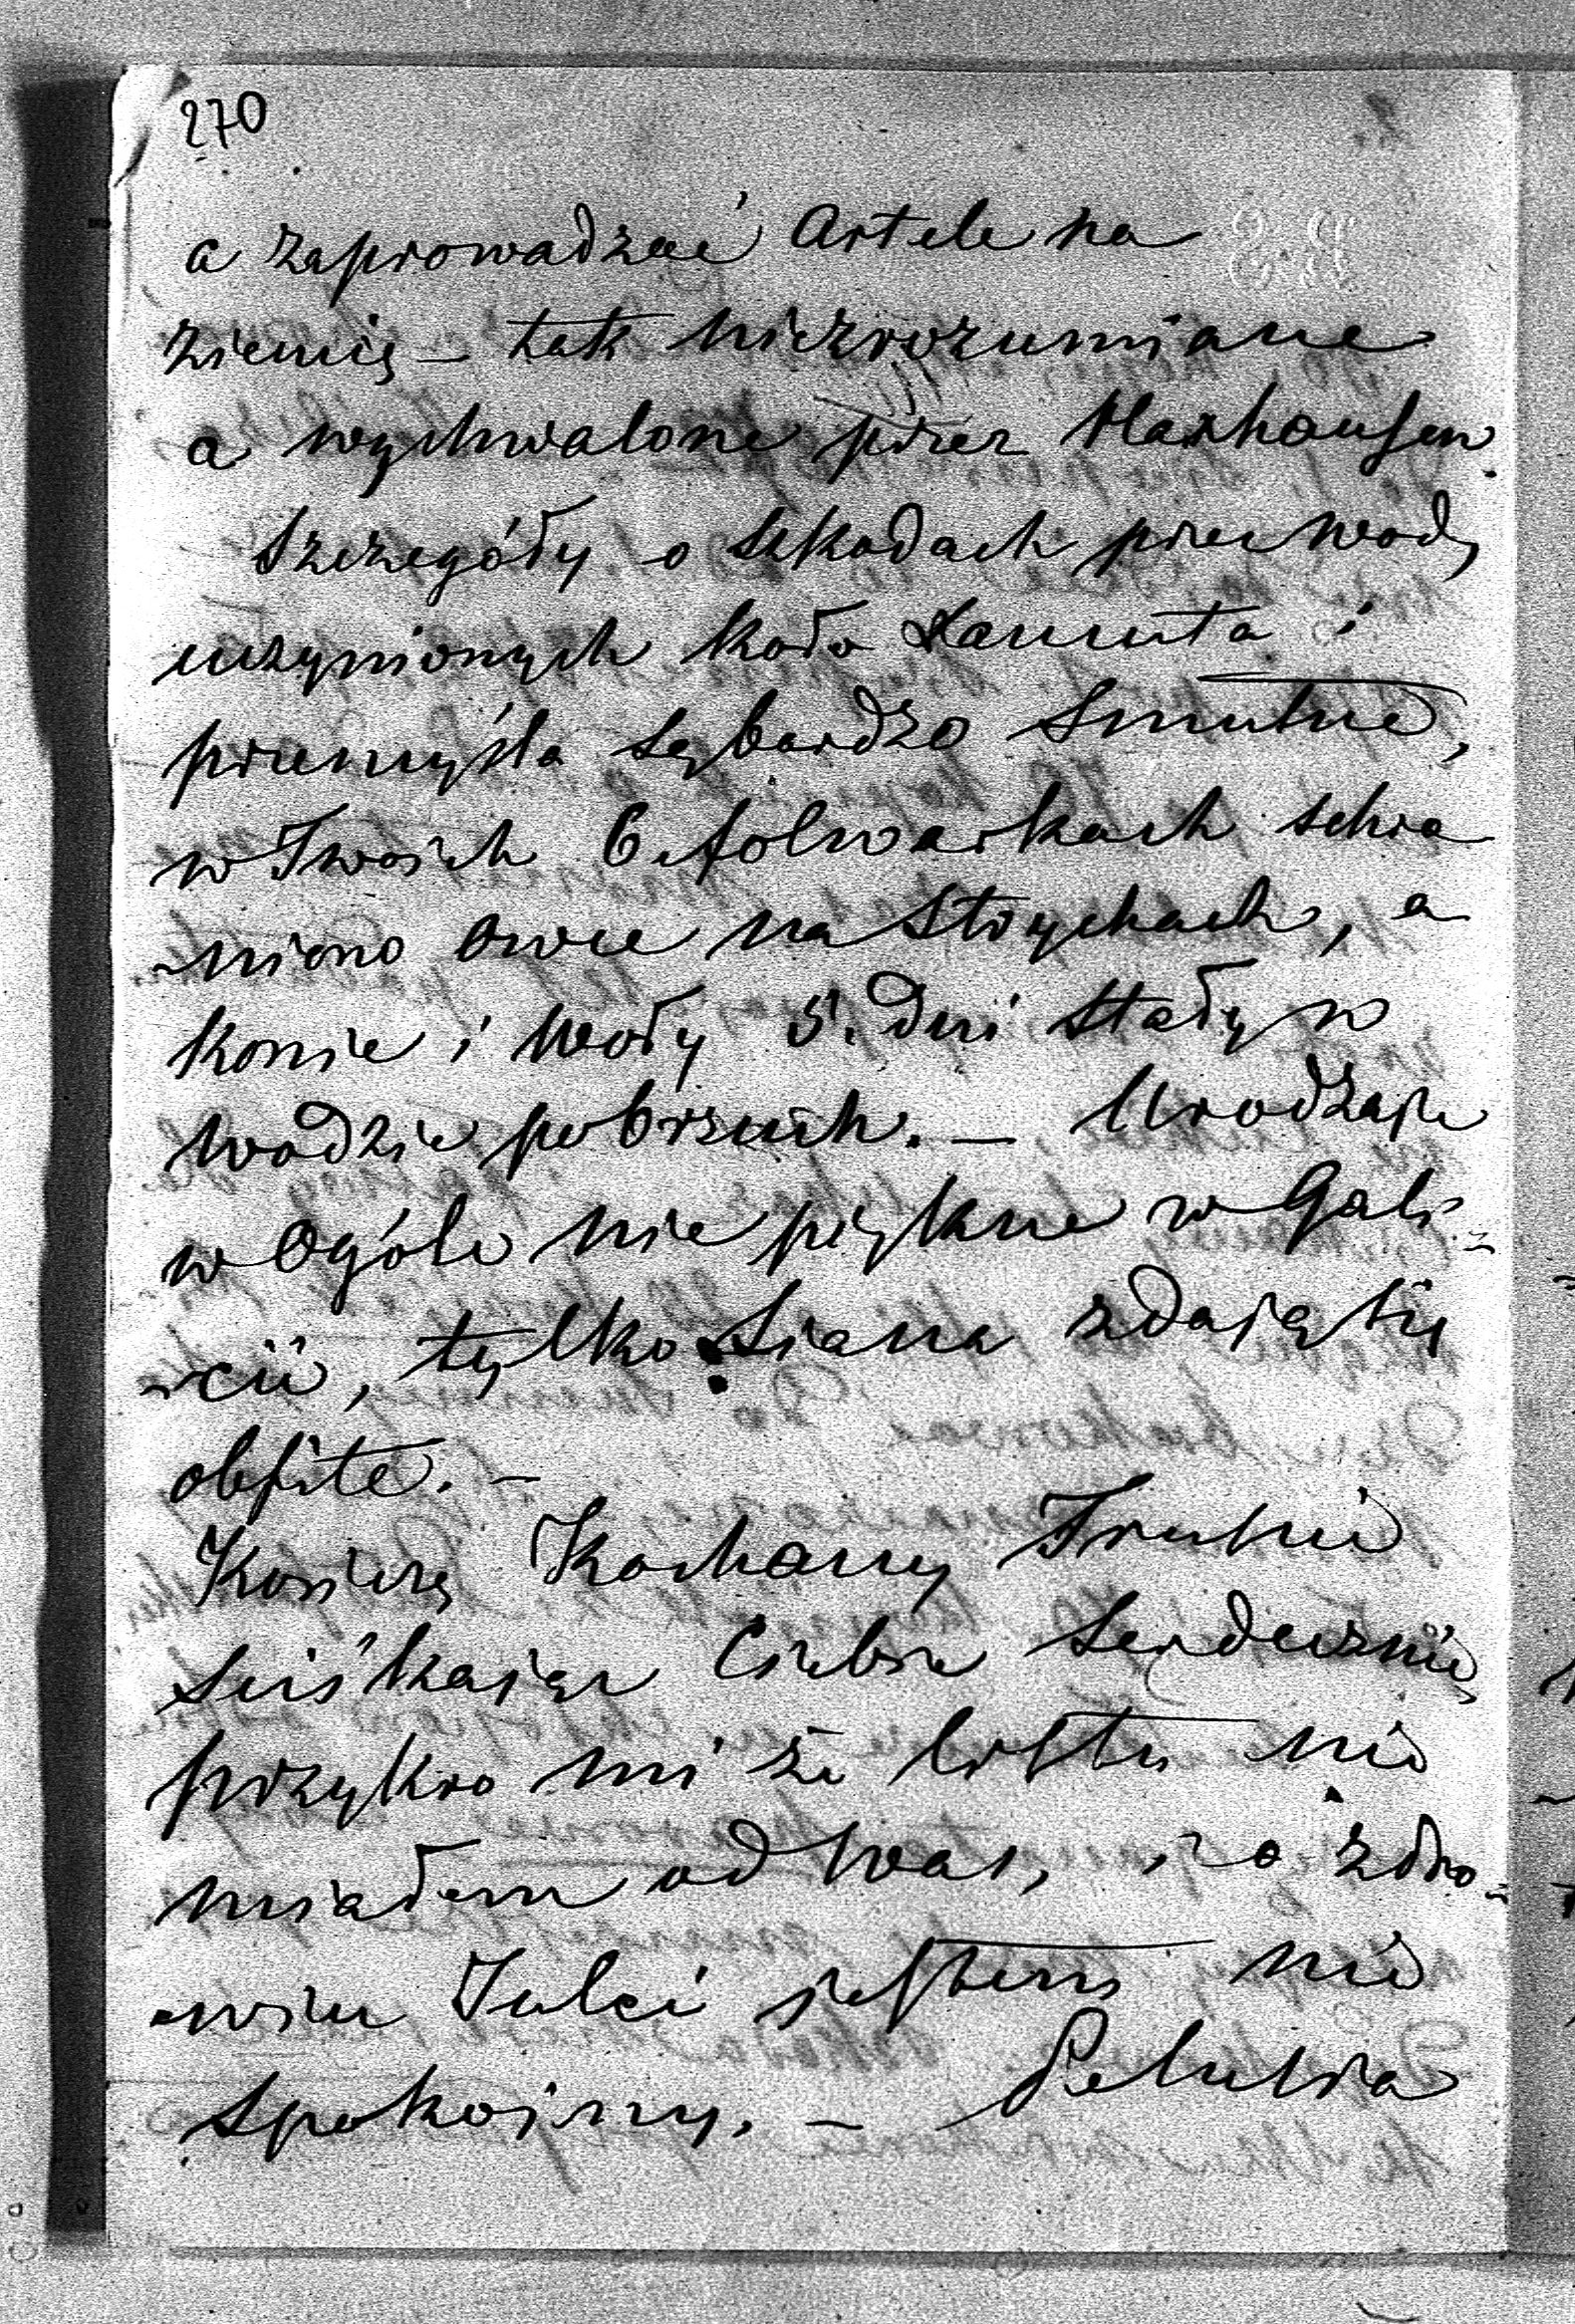 270
a zaprowadzać Artele na
ziemię – tak niezrozumiane
a wychwalone przez Haxhausen.
Szczegóły o szkodach przez wodę
uczynionych koło Łancuta i
przemyśla są bardzo smutne,
w Twoich 6. folwarkach schra
niono owce na strychach, a
konie i woły 5. dni stały w
wodzie po brzuch. – Urodzaje
w ogóle nie piękne w Gali-
cii, tylko siana zdają się
obfite. –
Kończę Kochany
sciskając Ciebie serdecznie,
przykro mi że listu nie
miałem od Was, i o zdro-
wiu Julci jestem nie
spokojny. –